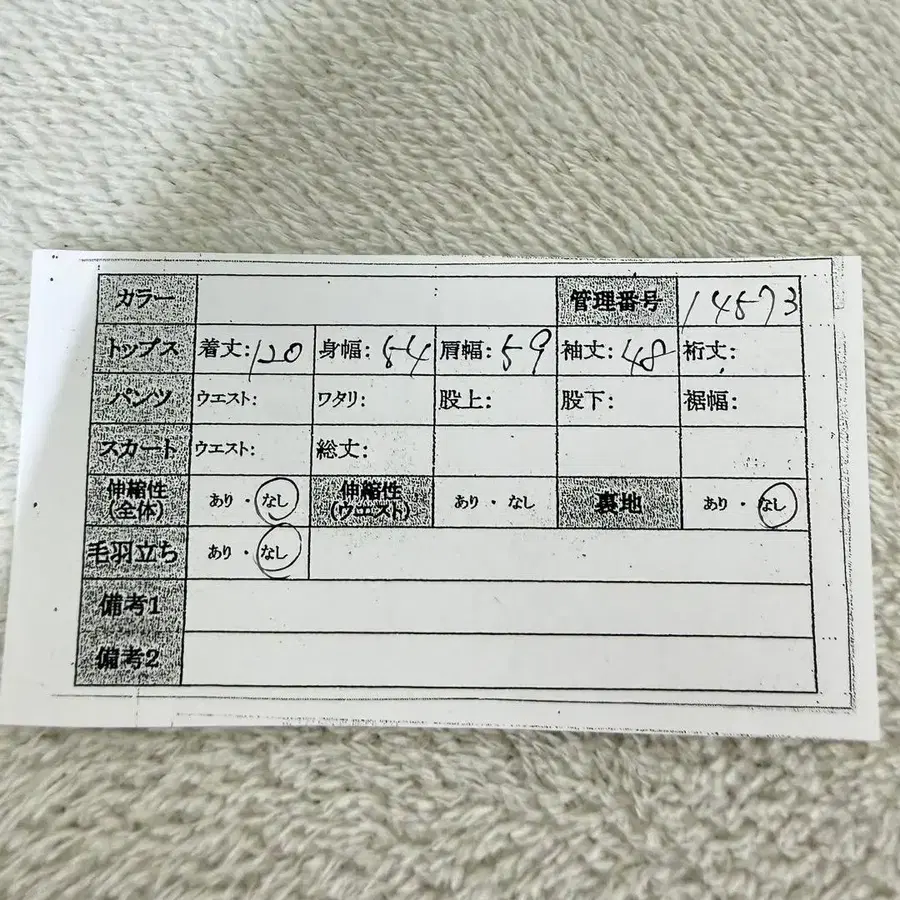 カラー 管理番号 14573
トップス 着丈:120 身幅:54 肩幅:59 袖丈:48 裄丈:
パンツ ウエスト: ワタリ: 股上: 股下: 裾幅:
スカート ウエスト: 総丈:
伸縮性(全体) あり・なし 伸縮性(ウエスト) あり・なし 裏地 あり・なし
毛羽立ち あり・なし
備考1
備考2